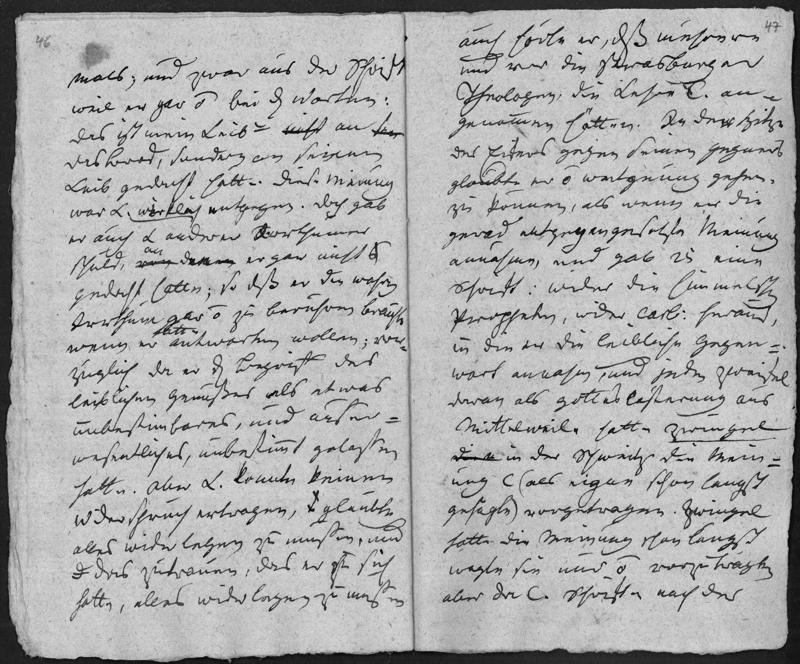 46
mals; und zwar aus der Schrift
weil er gar o bei d Worten:
das ist mein Leib nicht an
das Brod, sondern an seinen
Leib gedacht hatte. Diese Meinung
war L. wirklich entgegen. Doch gab
er auch L anderer Irrthümer
schuld, an er gar nichts
gedacht hatte; so dß er den wahren
Irrthum gar o zu berühren brauchte
wenn er hätte antworten wollen; vor-
züglich da er d Begriff des
leiblichen genusses als etwas
unbestimbares, und auser-
wesentliches, unbestimt gelassen
hatte. aber L. konnte keinen
Widerspruch ertragen, glaubte
alles widerlegen zu müssen, und
das zutrauen, das er zu sich
hatte, alles widerlegen zu müssen
47
auch hörte er, dß mehrere
und vor die Strasburger
Theologen, die Lehre C. an-
genomen hätten. In der Hitze
des Eifers gegen seinen gegner
glaubte er o weit genug gehen
zu können, als wenn er die
gerad entgegengesetzte Meinung
annahm, und gab 25 eine
Schrift: wider die himmelischen
Propheten, wider Carls: heraus,
in der er die leibliche Gegen-
wart annahm, und jeden zweifel
daran als gotteslästerung aus
Mittelweile hatte zwingel
in der Schweitz die Mein-
ung C (als eigne schon langst
gehegte) vorgetragen. Zwingel
hatte die Meinung schon langst
wagte sie nur o vorzutragen
aber da C. Schriften nach der